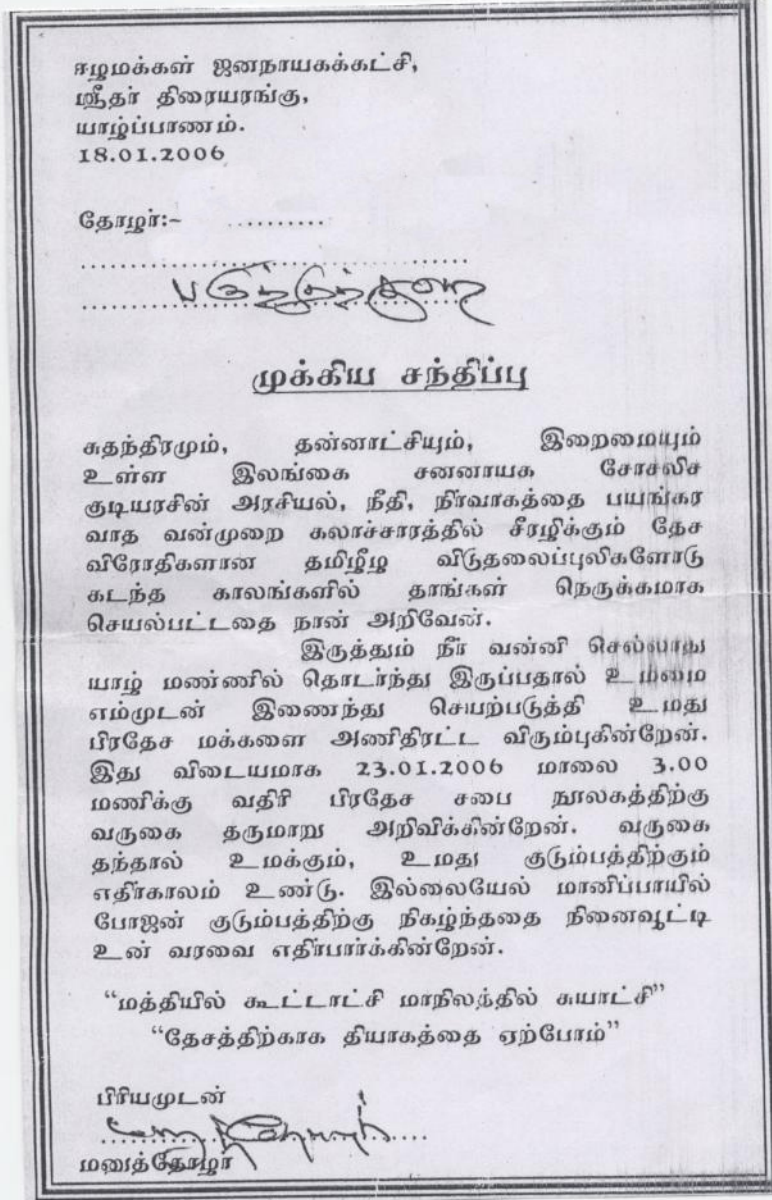 ஈழமக்கள் ஜனநாயகக்கட்சி,
ஸ்ரீதர் திரையரங்கு,
யாழ்ப்பாணம்.
18.01.2006
தோழர்:~ ..........
முக்கிய சந்திப்பு
சுதந்திரமும், தன்னாட்சியும், இறைமையும்
உள்ள இலங்கை சனனாயக சோசலிச
குடியரசின் அரசியல், நீதி, நிர்வாகத்தை பயங்கர
வாத வன்முறை கலாச்சாரத்தில் சீரழிக்கும் தேச
விரோதிகளான தமிழீழ விடுதலைப்புலிகளோடு
கடந்த காலங்களில் தாங்கள் நெருக்கமாக
செயல்பட்டதை நான் அறிவேன்.
இருத்தும் நீர் வன்னி செல்லாது
யாழ் மண்ணில் தொடர்ந்து இருப்பதால் உம்மை
எம்முடன் இணைந்து செயற்படுத்தி உமது
பிரதேச மக்களை அணிதிரட்ட விரும்புகின்றேன்.
இது விடையமாக 23.01.2006 மாலை 3.00
மணிக்கு வதிரி பிரதேச சபை நூலகத்திற்கு
வருகை தருமாறு அறிவிக்கின்றேன். வருகை
தந்தால் உமக்கும், உமது குடும்பத்திற்கும்
எதிர்காலம் உண்டு. இல்லையேல் மானிப்பாயில்
போஜன் குடும்பத்திற்கு நிகழ்ந்ததை நினைவூட்டி
உன் வரவை எதிர்பார்க்கின்றேன்.
“மத்தியில் கூட்டாட்சி மாநிலந்தில் சுயாட்சி”
“தேசத்திற்காக தியாகத்தை ஏற்போம்”
பிரியமுடன்
மனுத்தோழர்